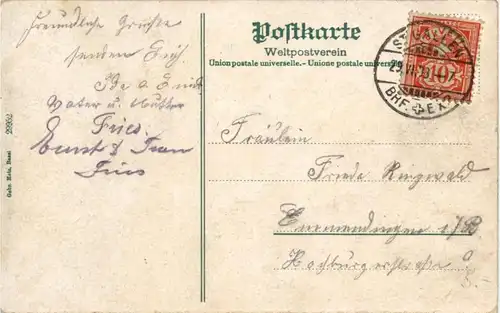 Freundliche Grüße
senden Euch
Vater u. Mutter
Fries.
Ernst & Frau
Fries
29902
Gebr. Metz, Basel
Postkarte
Weltpostverein
Union postale universelle. - Unione postale universale
ST. GALLEN
BRF. EXP.
10
Fräulein
Friede Ringwald
Emmendingen i/B
Hochburgerstraße